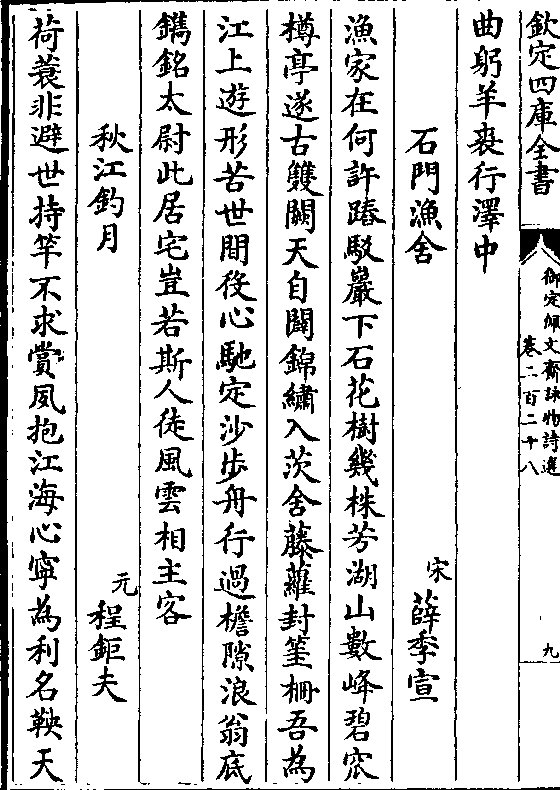 欽定四庫全書
御定佩文齋詠物詩選
卷二百二十八
九
曲躬羊裘行澤中
石門漁舍
宋
薛季宣
漁家在何許踳駁巖下石花樹幾株芳湖山數峰碧窊
樽亭遂古雙闕天自闢錦繡入茨舍藤蘿封篁柵吾為
江上遊形苦世間役心馳定沙步舟行過檐隙浪翁底
鐫銘太尉此居宅豈若斯人徒風雲相主客
秋江釣月
元
程鉅夫
荷蓑非避世持竿不求賞夙抱江海心寧為利名鞅天